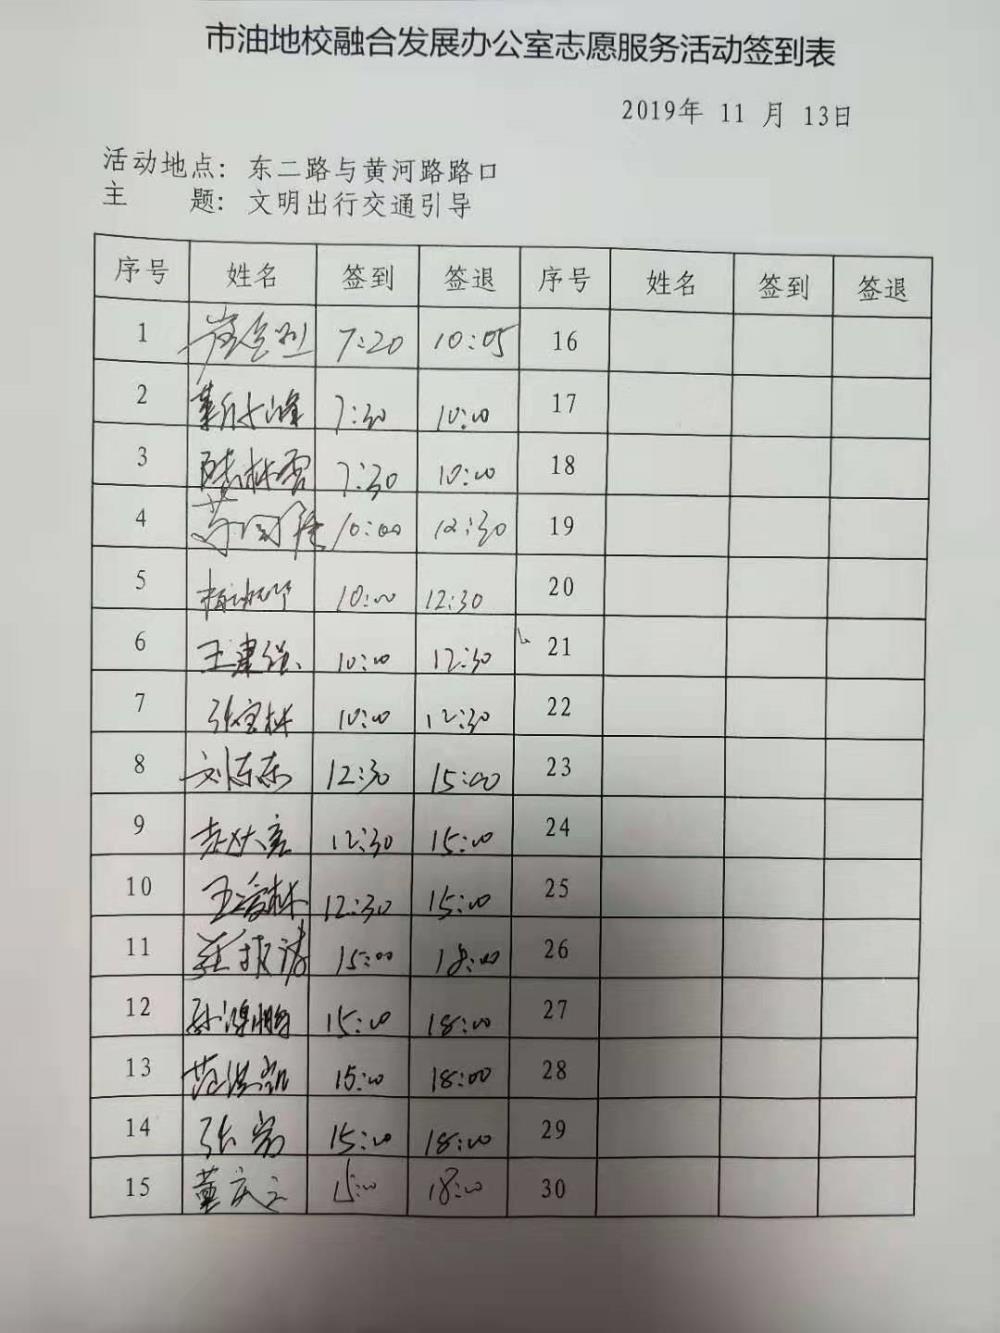 市油地校融合发展办公室志愿服务活动签到表
2019年 11 月 13日
活动地点：东二路与黄河路路口
主 题：文明出行交通引导
序号 姓名 签到 签退 序号 姓名 签到 签退
1 7:20 10:05 16
2 7:30 10:00 17
3 7:30 10:00 18
4 10:00 12:30 19
5 10:00 12:30 20
6 王建强 10:00 12:30 21
7 张宝林 10:00 12:30 22
8 刘东东 12:30 15:00 23
9 12:30 15:00 24
10 王爱林 12:30 15:00 25
11 15:00 18:00 26
12 孙鸿鹏 15:00 18:00 27
13 范洪凯 15:00 18:00 28
14 张岩 15:00 18:00 29
15 15:00 18:00 30